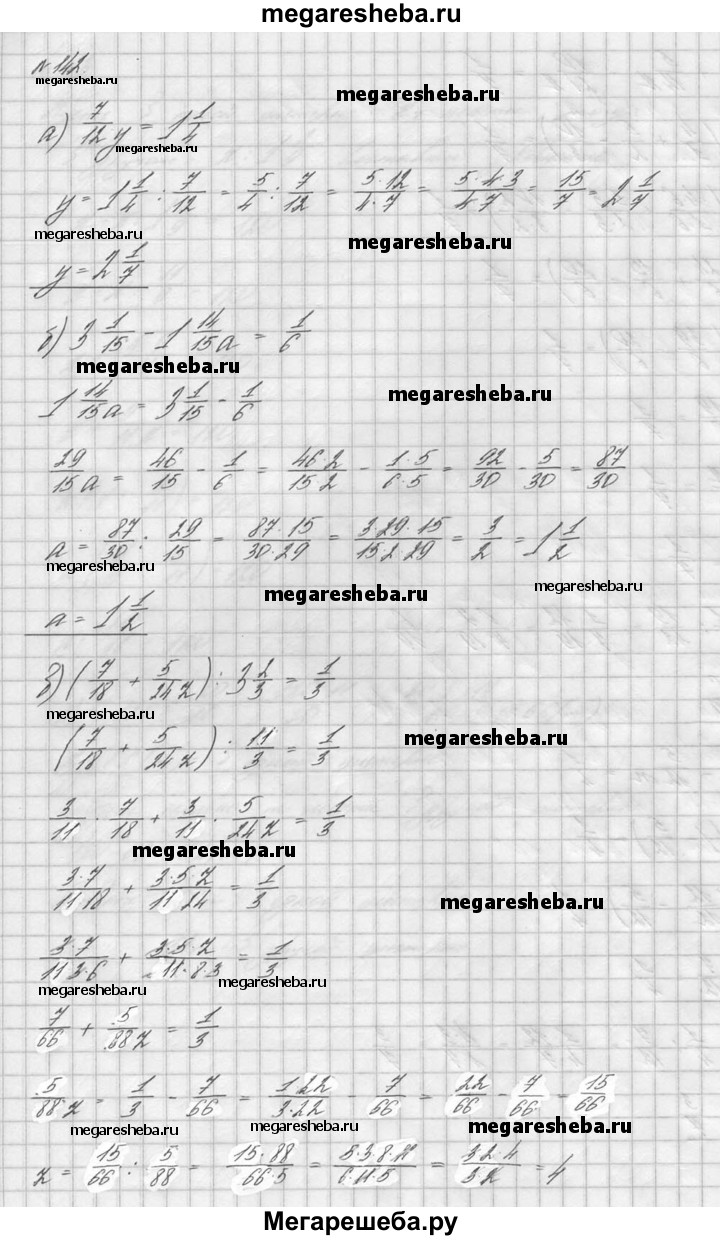 megaresheba.ru
№ 142
megaresheba.ru
megaresheba.ru
а) 7/12 y = 1 1/4
megaresheba.ru
y = 1 1/4 : 7/12 = 5/4 : 7/12 = 5·12/4·7 = 5·4·3/4·7 = 15/7 = 2 1/7
megaresheba.ru
megaresheba.ru
y = 2 1/7
б) 3 1/15 - 1 14/15 a = 1/6
megaresheba.ru
1 14/15 a = 3 1/15 - 1/6
megaresheba.ru
29/15 a = 46/15 - 1/6 = 46·2/15·2 - 1·5/6·5 = 92/30 - 5/30 = 87/30
a = 87/30 : 29/15 = 87·15/30·29 = 3·29·15/15·2·29 = 3/2 = 1 1/2
megaresheba.ru
megaresheba.ru
megaresheba.ru
a = 1 1/2
в) (7/18 + 5/24 z) : 3 2/3 = 1/3
megaresheba.ru
(7/18 + 5/24 z) : 11/3 = 1/3
megaresheba.ru
3/11 · 7/18 + 3/11 · 5/24 z = 1/3
megaresheba.ru
3·7/11·18 + 3·5·z/11·24 = 1/3
megaresheba.ru
3·7/11·3·6 + 3·5·z/11·8·3 = 1/3
megaresheba.ru
megaresheba.ru
7/66 + 5/88 z = 1/3
5/88 z = 1/3 - 7/66 = 1·22/3·22 - 7/66 = 22/66 - 7/66 = 15/66
megaresheba.ru
megaresheba.ru
megaresheba.ru
z = 15/66 : 5/88 = 15·88/66·5 = 5·3·8·11/6·11·5 = 3·2·4/3·2 = 4
Мегарешеба.ру